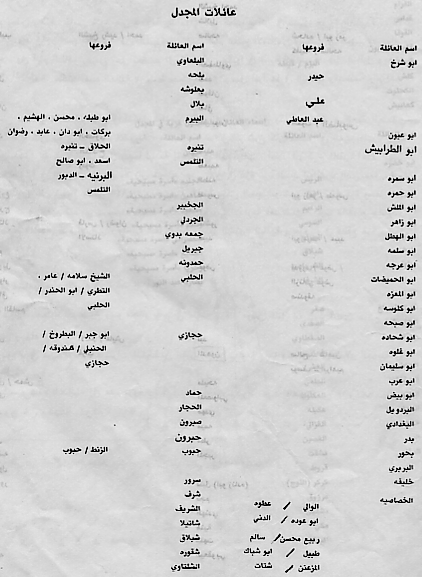 عائلات المجدل
اسم العائلة فروعها
ابو شرخ
حيدر
علي
عبد العاطي
ابو عبون
ابو الطرابيش
ابو سمره
ابو حمره
ابو الملش
ابو زاهر
ابو الهطل
ابو سلمه
ابو عرجه
ابو الحميضات
ابو المعزه
ابو كلوسه
ابو صبحه
ابو شحاده
ابو غلوه
ابو سليمان
ابو عرب
ابو بيض
البردويل
البغدادي
بدر
بحور
البربري
خليفه
الخصاصيه
الوالي / عطوه
ابو عوده / الدني
ربيع محسن / سالم
طبيل / ابو شباك
المزعنن / شتات
اسم العائلة فروعها
البلعاوي
بلحه
بعلوشه
بلال
البيرم ابو طبله ، محسن ، الهشيم ،
بركات ، ابو دان ، عابد ، رضوان
تنبره الحلاق - تنبره
التلمس اسعد ، ابو صالح
البرنيه - الدبور
التلمس
الجخبير
الجردلي
جمعه بدوي
جبريل
حمدونه
الحلبي الشيخ سلامه / عامر ،
النطري / ابو الخندر /
الحلبي
حجازي ابو جبر / البطروخ /
الحنبلي / هندوقه /
حجازي
حماد
الحجار
صبرون
حبرون
حبوب الزنط / حبوب
سرور
شرف
الشريف
شانيلا
شبلاق
شقوره
الشلتاوي